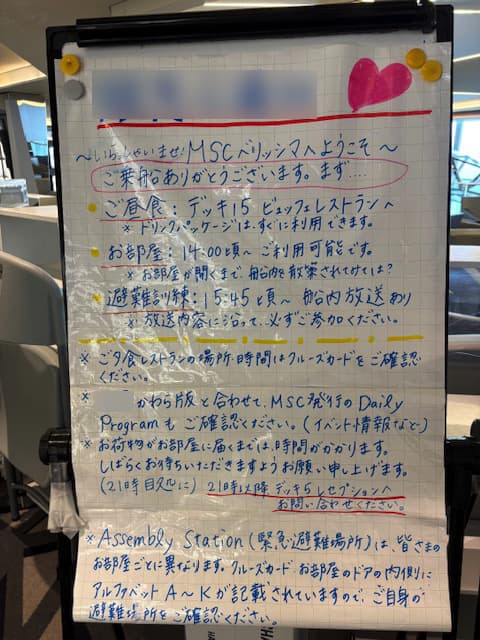 ~いらっしゃいませ! MSCベリッシマへようこそ~
ご乗船ありがとうございます。まず....
・ご昼食：デッキ15 ビュッフェレストランへ
※ドリンクパッケージは、すぐに利用できます。
・お部屋：14:00頃～ご利用可能です。
※お部屋が開くまで、船内を散策されてみては？
・避難訓練：15:45頃～船内放送あり
※放送内容に沿って、必ずご参加ください。
※ご夕食レストランの場所・時間はクルーズカードをご確認
ください。
※ かわら版と合わせて、MSC発行のDaily
Programもご確認ください。(イベント情報など)
※お荷物がお部屋に届くまでは、時間がかかります。
しばらくお待ちいただきますようお願い申し上げます。
(21時目処に) 21時以降 デッキ5 レセプションへ
お問い合わせください。
※Assembly Station(緊急避難場所)は、皆さまの
お部屋ごとに異なります。クルーズカード お部屋のドアの内側に
アルファベットA～Kが記載されていますので、ご自身の
避難場所をご確認ください。